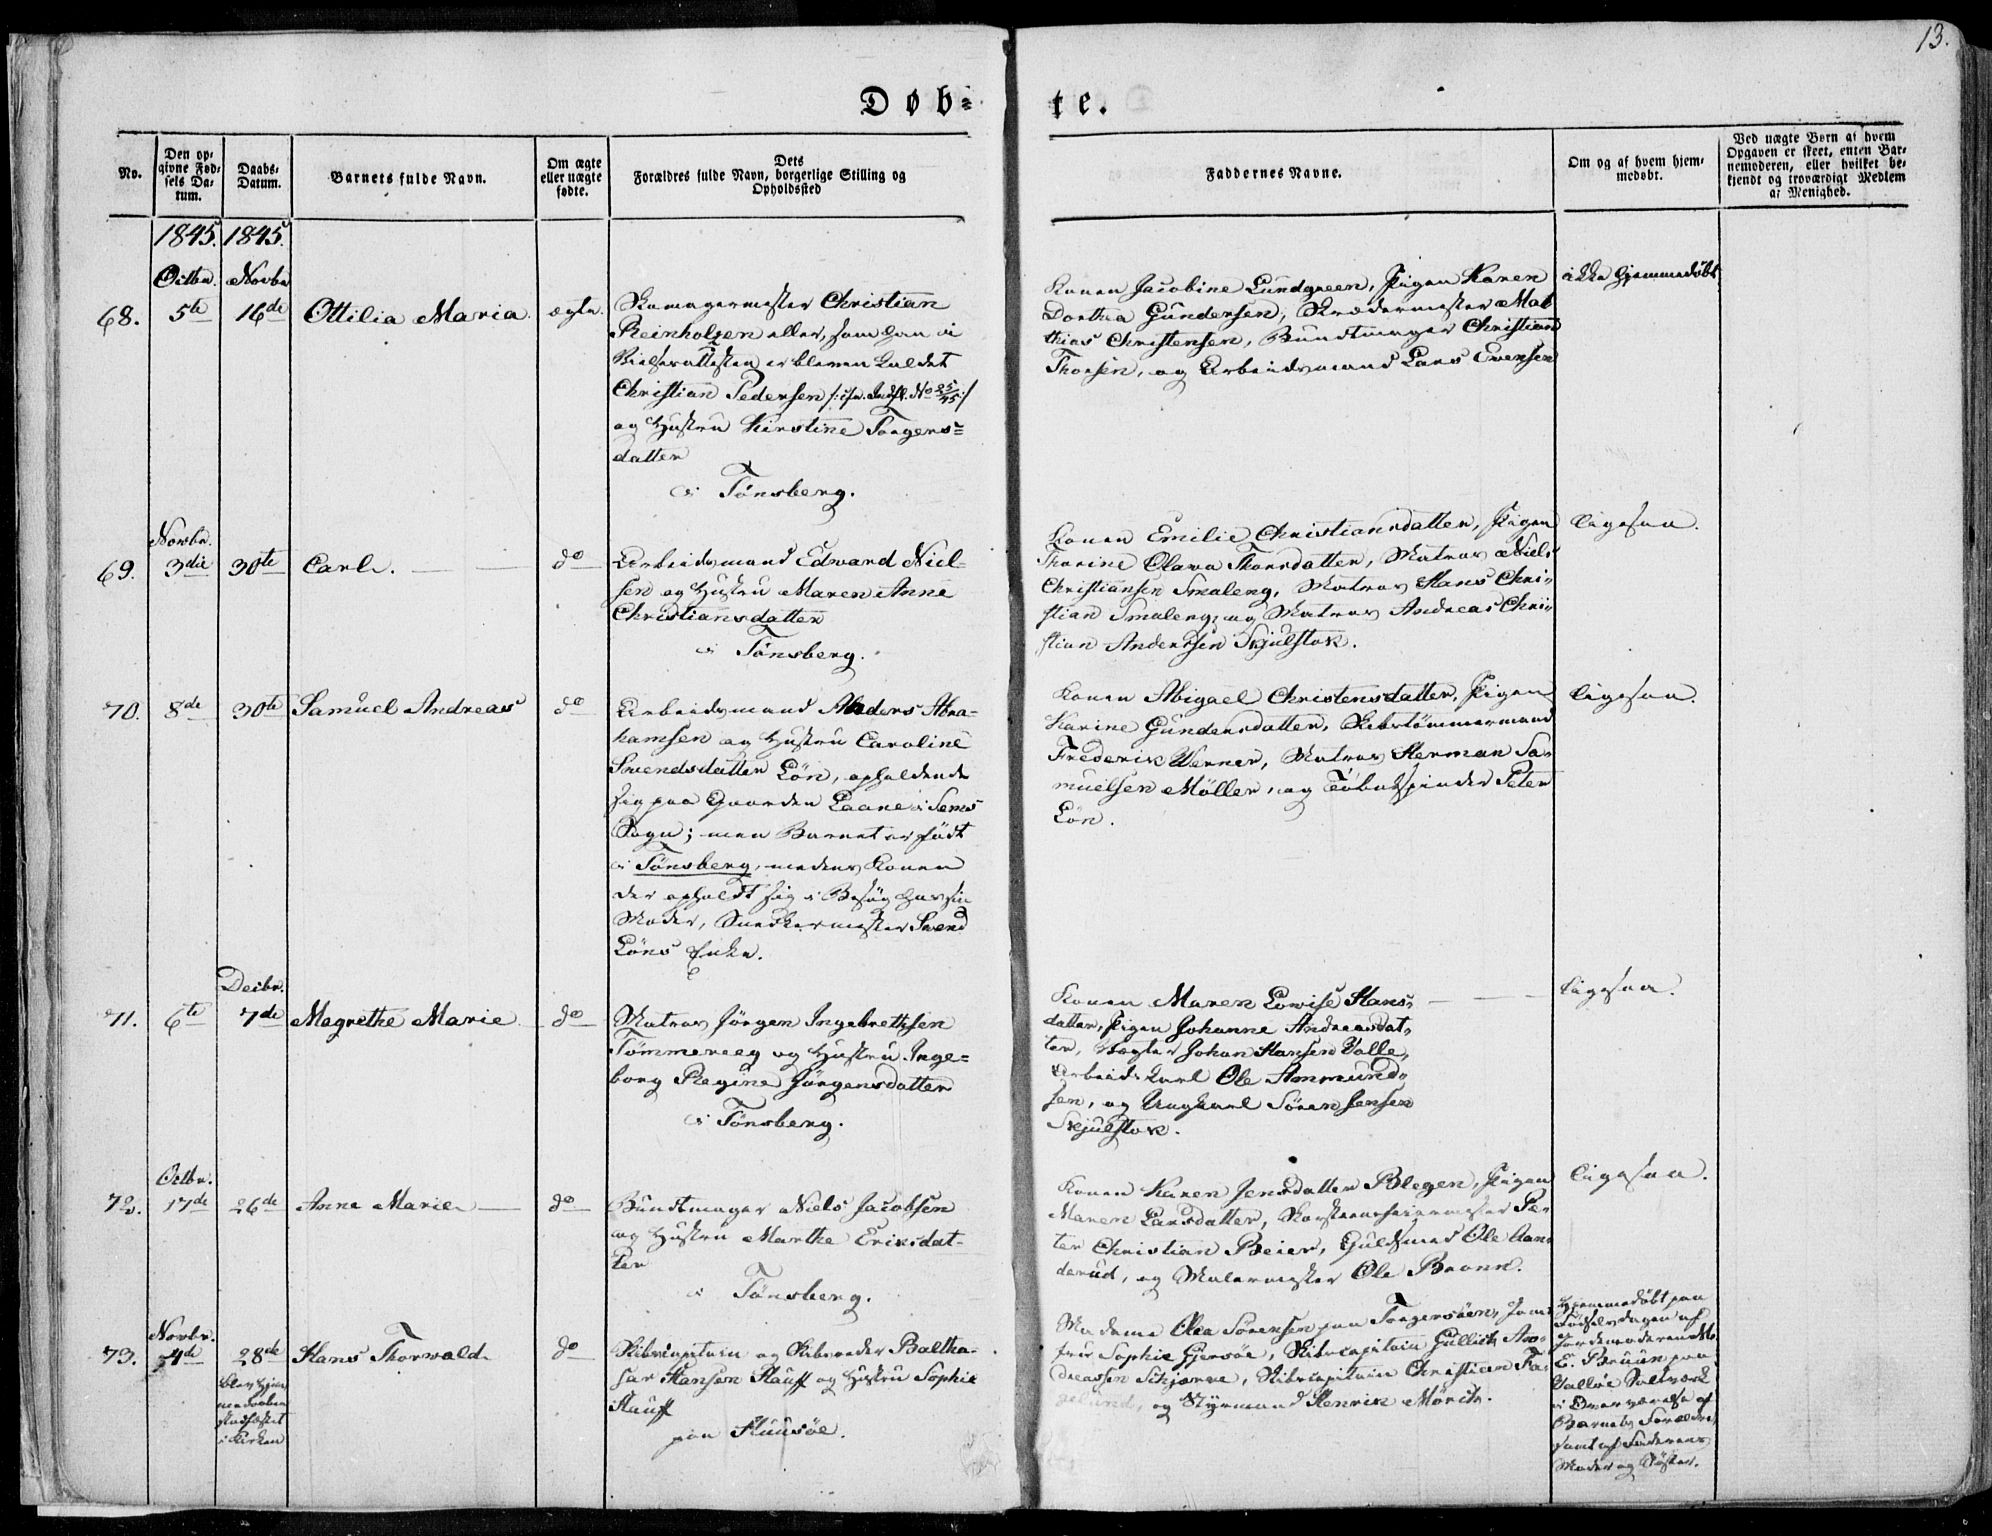 13.
Døb-
te.
No.
Den op-
givne Fød-
sels Da-
tum.
Daabs-
Datum.
Barnets fulde Navn.
Om ægte
eller uægte
fødte.
Dets
Forældres fulde Navn, borgerlige Stilling og
Opholdssted
Faddernes Navne.
Om og af hvem hjem-
medøbt.
Ved uægte Børn af hvem
Opgaven er skeet, enten Bar-
nemoderen, eller hvilket be-
kjendt og troværdigt Medlem
af Menighed.
1845. 1845.
Octbr. Novbr.
68. 5te 16de Ottilia Maria. ægte.
Skomagermester Christian
Reinholzen eller, som han i
Vielsesattesten er bleven kaldet
Christian Pedersen /: cfr. Indf. No 25/45 :/
og Hustru Kirstine Torgers-
datter
i Tönsberg.
Konen Jacobine Lundgreen, Pigen Karen
Dorthea Gundersen, Skrædermester Mat
thias Christensen, Bundtmager Christian
Thorsen, og Arbeidsmand Lars Evensen
ikke hjemmedøbt
Novbr.
69. 3die 30te Carl. do
Arbeidsmand Edward Niel-
sen og Hustru Maren Anne
Christiansdatter
i Tönsberg.
Konen Emilie Christiansdatter, Pigen
Thorine Olava Thorsdatter, Matros Niels
Christiansen Smaleng, Matros Hans Chri-
stian Smaleng, og Matros Andreas Chri-
stian Andersen Skjulstok.
ligesaa.
70. 8de 30te Samuel Andreas do
Arbeidsmand Anders Abra-
hamsen og Hustru Caroline
Svendsdatter Lön, opholdende
sig paa Gaarden Laane i Sems
Sogn; men Barnet er født
i Tönsberg, medens Konen
der opholdt sig i Besøg hos sin
Moder, Snedkermester Svend
Löns Enke.
Konen Abigael Christensdatter, Pigen
Karine Gundersdatter, Skibstømmermand
Frederik Werner, Matros Herman Sa-
muelsen Möller, og Tobakspinder Peter
Lön.
ligesaa.
Decbr.
71. 6te 7de Magrethe Marie do
Matros Jörgen Ingebrethsen
Tömmereeg og Hustru Inge-
borg Regine Jörgensdatter
i Tönsberg.
Konen Maren Lowise Hans-
datter, Pigen Johanne Andreasdat-
ter, Vægter Johan Hansen Valle,
Arbeidskarl Ole Ammund-
sen, og Ungkarl Sören Jensen
Skjulstok.
ligesaa.
Octbr.
72. 17de 26de Anne Marie do
Bundtmager Niels Jacobsen
og Hustru Marthe Eriksdat-
ter
i Tönsberg.
Konen Karen Jensdatter Blegen, Pigen
Maren Larsdatter, Skorsteensfeiermester Pe-
ter Christian Beier, Guldsmed Ole Aan-
derud, og Malermester Ole Bronn.
ligesaa.
Novbr.
73. 4de 28de Hans Thorwald do
blev hjem-
medaaben
stadfæstet
i Kirken
Skibscapitain og Skibsreder Baltha-
sar Hansen Hauff og Hustru Sophie
Hauff
paa Huusöe.
Madame Olea Sörensen paa Torgersöen, Jom-
fru Sophie Gjersöe, Skibscapitain Gullich An-
dreassen Schjerve, Skibscapitain Christian Fa-
gelund, og Styrmand Henrik Mörch.
Hjemmedöbt paa
Födselsdagen af
Jordemoderen Md.
E. Bruun paa
Valløe Saltværk
i Overværelse af
Barnets Forældre,
samt af Faderens
Moder og Søster.